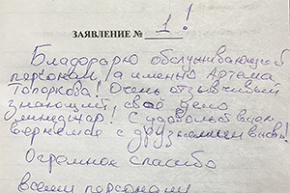 ЗАЯВЛЕНИЕ № 1!
Благодарю обслуживающий
персонал, а именно Артема
Топоркова! Очень отзывчивый
знающий, своё дело
менеджер! С удовольствием
вернемся с друзьями вновь!
Огромное спасибо
всему персоналу